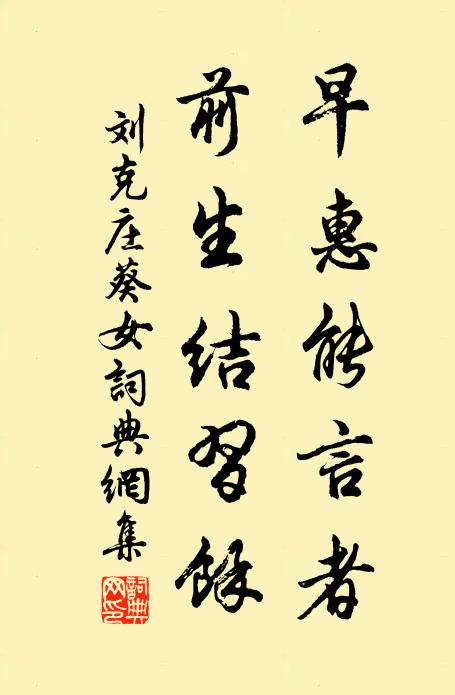 早惠能言者
前生结習餘
刘克庄葵女詞典網集
詞典网印